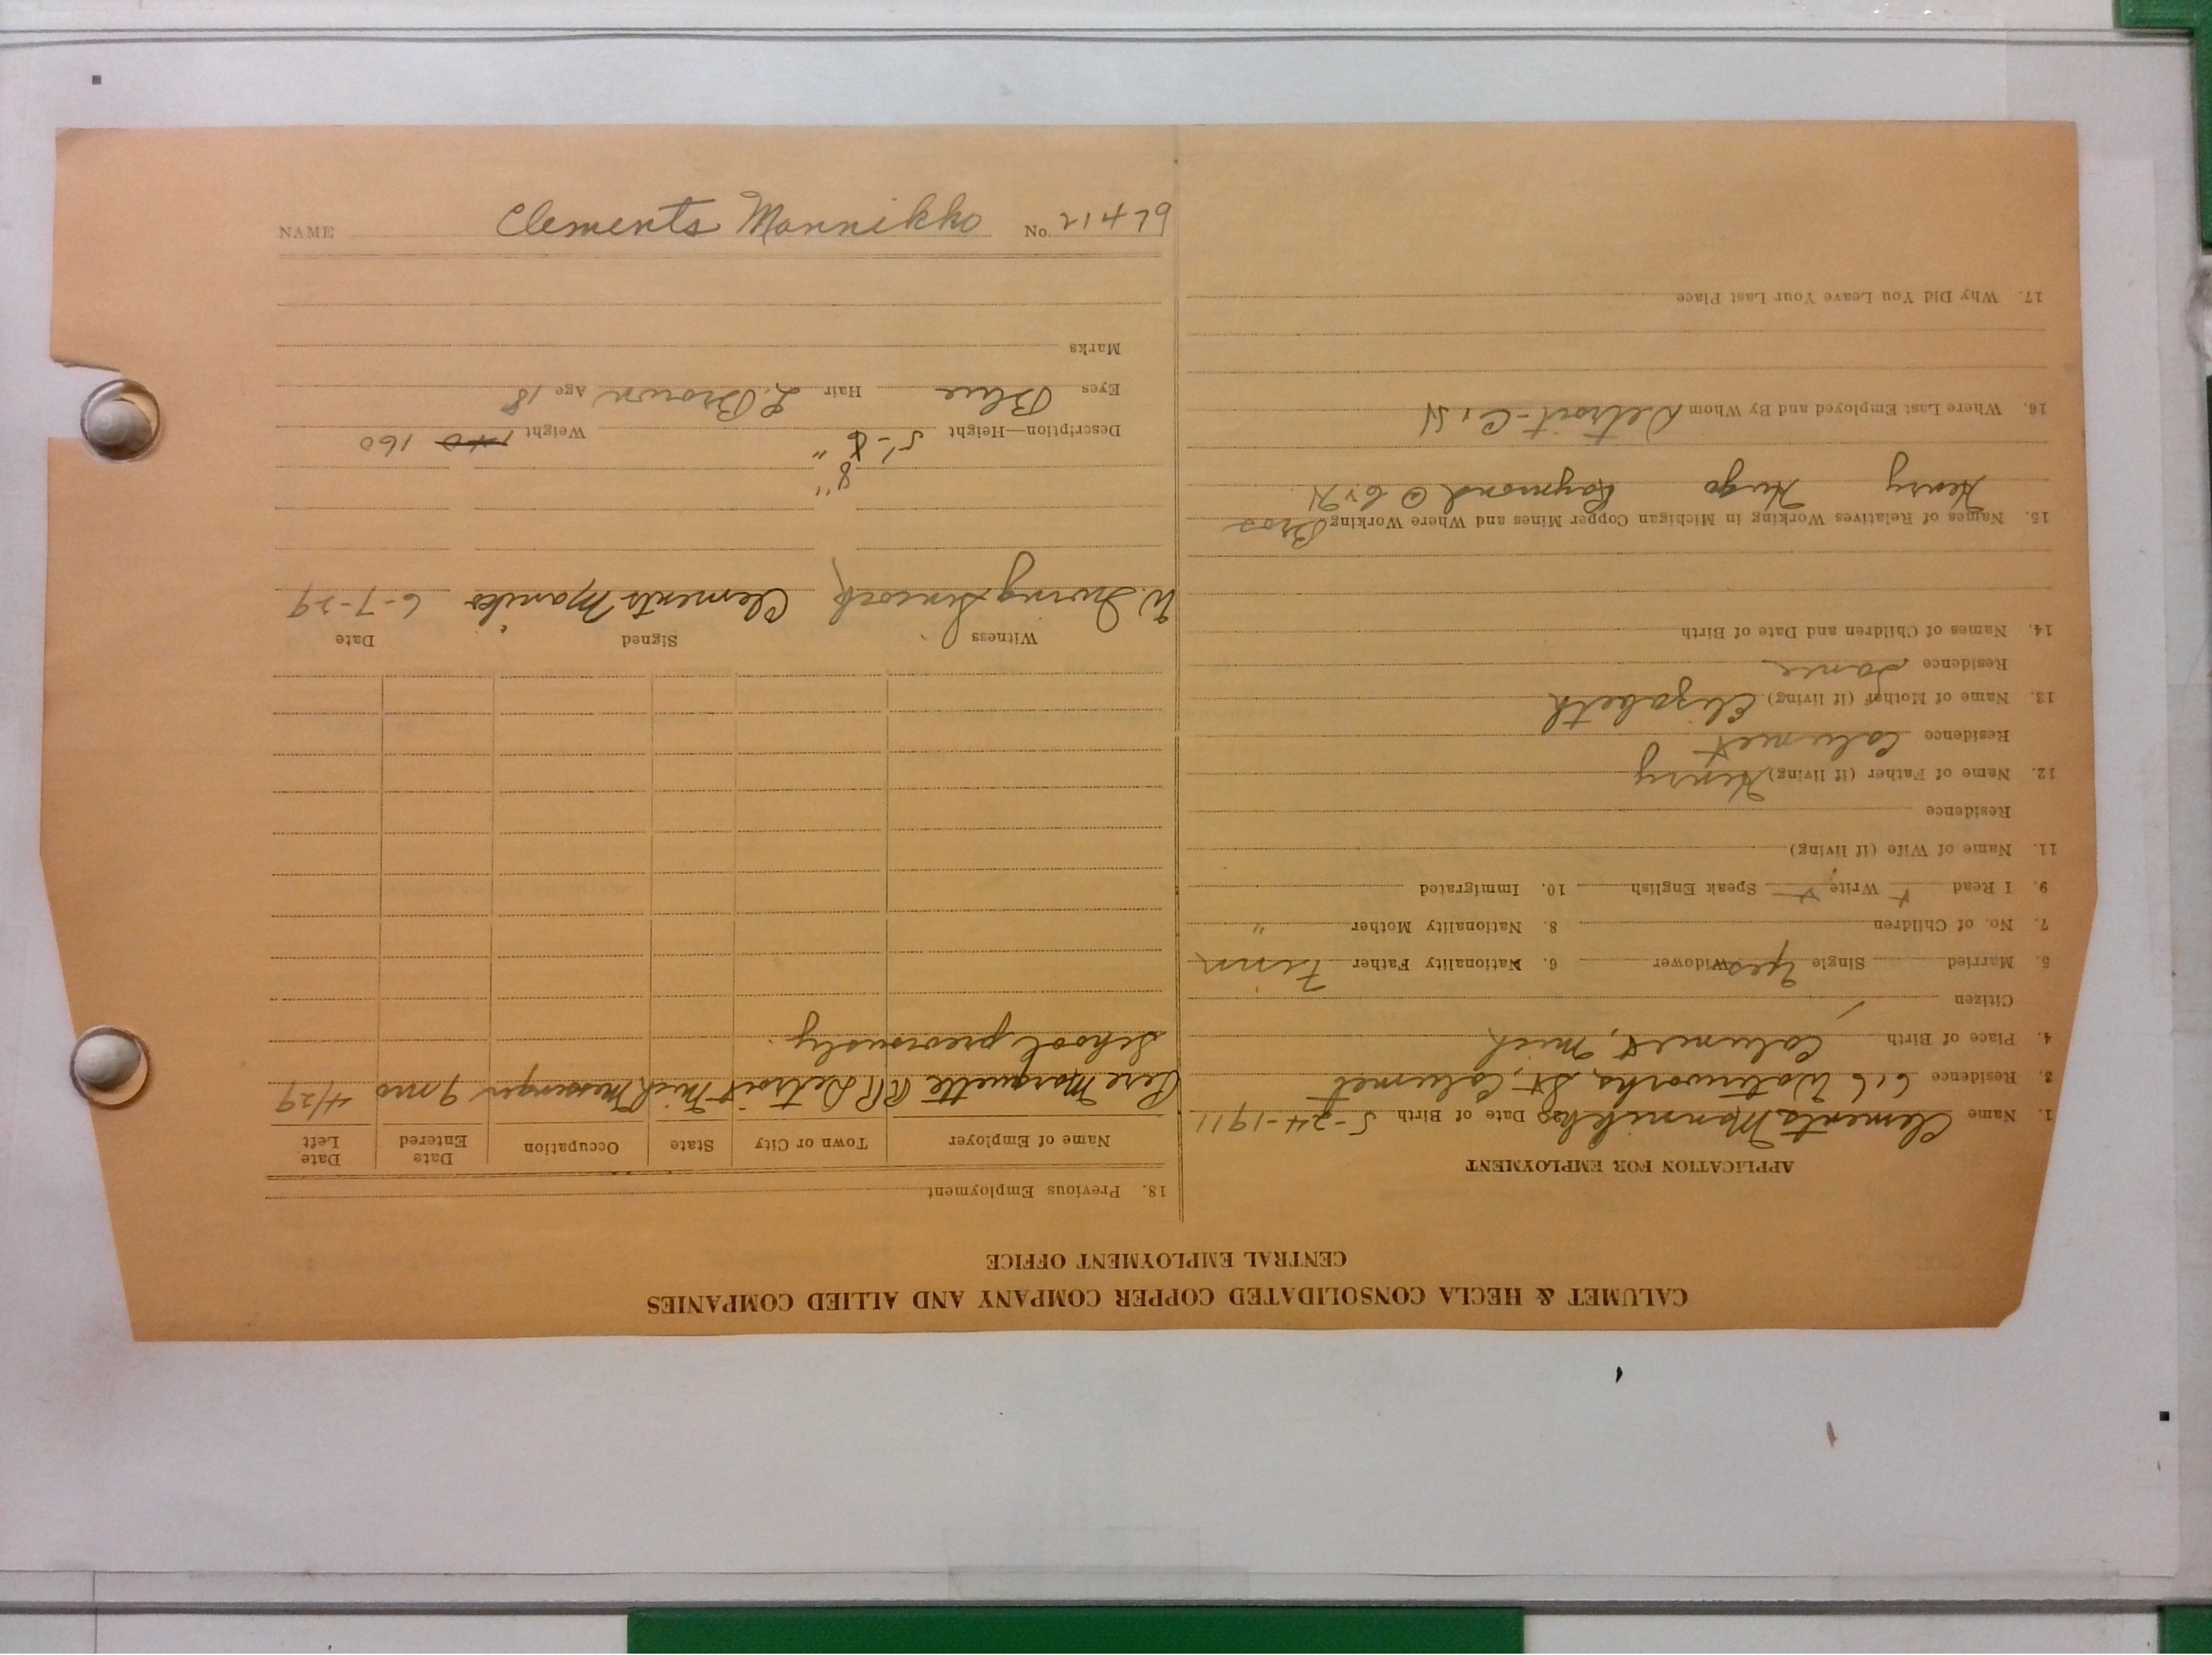 CALUMET & HECLA CONSOLIDATED COPPER COMPANY AND ALLIED COMPANIES
CENTRAL EMPLOYMENT OFFICE
APPLICATION FOR EMPLOYMENT
1. Name Clements Mannikko Date of Birth 5-24-1911
3. Residence 616 Waterworks St, Calumet
4. Place of Birth Calumet, Mich
Citizen /
5. Married Single Yes Widower 6. Nationality Father Finn
7. No. of Children 8. Nationality Mother "
9. I Read + Write + Speak English 10. Immigrated
11. Name of Wife (if living)
Residence
12. Name of Father (if living) Henry
Residence Calumet
13. Name of Mother (if living) Elizabeth
Residence Same
14. Names of Children and Date of Birth
15. Names of Relatives Working in Michigan Copper Mines and Where Working Bros
Henry Hugo Raymond @ C & H
16. Where Last Employed and By Whom Detroit - C & H
17. Why Did You Leave Your Last Place
18. Previous Employment
Name of Employer Town or City State Occupation Date Entered Date Left
Pere Marquette RR Detroit Mich Messenger 9 mos 4/29
School previously.
Witness Signed Date
W. Irving Clements Maniko 6-7-29
8"
Description—Height 5'-6" Weight 140 160
Eyes Blue Hair L. Brown Age 18
Marks
NAME Clements Mannikko No. 21479